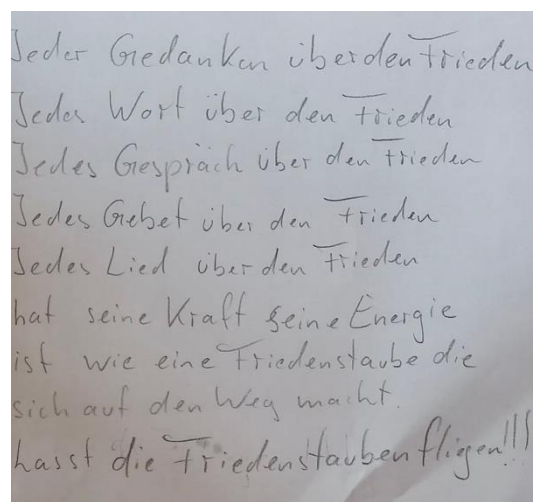 Jeder Gedanken über den Frieden
Jedes Wort über den Frieden
Jedes Gespräch über den Frieden
Jedes Gebet über den Frieden
Jedes Lied über den Frieden
hat seine Kraft seine Energie
ist wie eine Friedenstaube die
sich auf den Weg macht.
Lasst die Friedenstauben fligen!!!